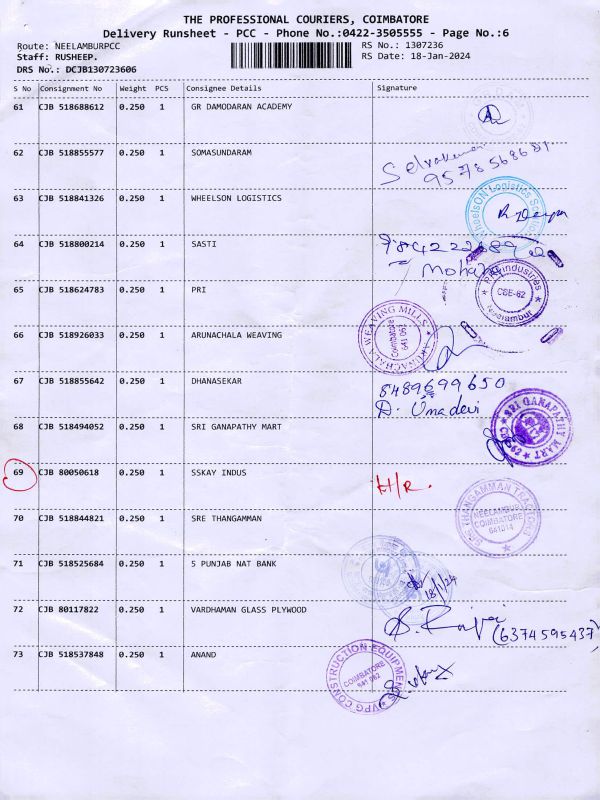 THE PROFESSIONAL COURIERS, COIMBATORE
Delivery Runsheet - PCC - Phone No.:0422-3505555 - Page No.:6
Route: NEELAMBURPCC RS No.: 1307236
Staff: RUSHEEP. RS Date: 18-Jan-2024
DRS No.: DCJB130723606
S No Consignment No Weight PCS Consignee Details Signature
61 CJB 518688612 0.250 1 GR DAMODARAN ACADEMY
62 CJB 518855577 0.250 1 SOMASUNDARAM
63 CJB 518841326 0.250 1 WHEELSON LOGISTICS WheelsON Logistics
64 CJB 518800214 0.250 1 SASTI
Mohana
65 CJB 518624783 0.250 1 PRI Industries COE-62 Neelambur
66 CJB 518926033 0.250 1 ARUNACHALA WEAVING ARUNACHALA WEAVING MILLS Coimbatore 641 062
67 CJB 518855642 0.250 1 DHANASEKAR 8489699650
D. Umadevi
68 CJB 518494052 0.250 1 SRI GANAPATHY MART SRI GANAPATHY MART
69 CJB 80050618 0.250 1 SSKAY INDUS H/R.
70 CJB 518844821 0.250 1 SRE THANGAMMAN SRI THANGAMMAN TRACTORS NEELAMBUR COIMBATORE 641014
71 CJB 518525684 0.250 1 S PUNJAB NAT BANK 18/1/24
72 CJB 80117822 0.250 1 VARDHAMAN GLASS PLYWOOD
(6374595437)
73 CJB 518537848 0.250 1 ANAND VPG CONSTRUCTION EQUIPMENTS COIMBATORE 641 062